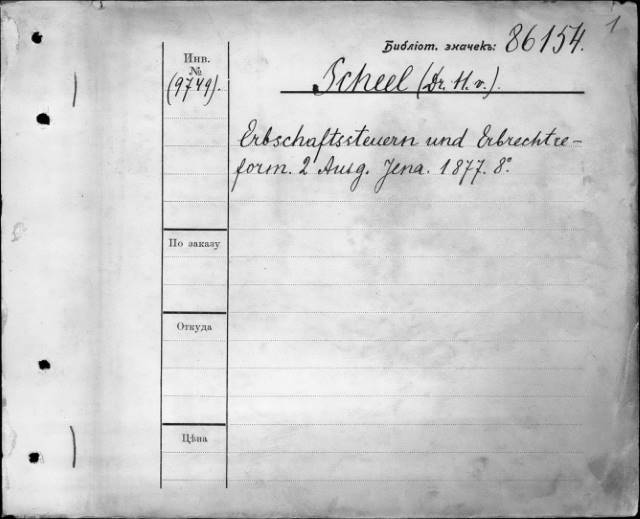 1
Библіот. значекъ: 86154.
Инв.
№
(9749).
Scheel (Dr. H. v.).
Erbschaftssteuern und Erbrechtre-
form. 2 Ausg. Jena. 1877. 8°
По заказу
Откуда
Цѣна